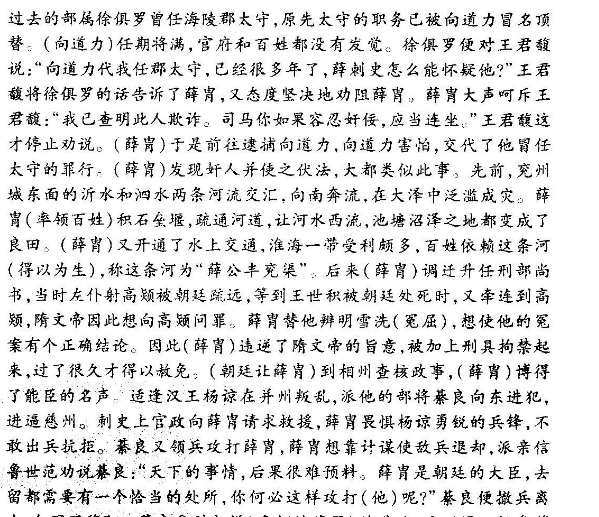 过去的部属徐俱罗曾任海陵郡太守,原先太守的职务已被向道力冒名顶
替。(向道力)任期将满,官府和百姓都没有发觉。徐俱罗便对王君馥
说:“向道力代我任郡太守,已经很多年了,薛刺史怎么能怀疑他?”王君
馥将徐俱罗的话告诉了薛胄,又态度坚决地劝阻薛胄。薛胄大声呵斥王
君馥:“我已查明此人欺诈。司马你如果容忍奸佞,应当连坐。”王君馥这
才停止劝说。(薛胄)于是前往逮捕向道力,向道力害怕,交代了他冒任
太守的罪行。(薛胄)发现奸人并使之伏法,大都类似此事。先前,兖州
城东面的沂水和泗水两条河流交汇,向南奔流,在大泽中泛滥成灾。薛
胄(率领百姓)积石垒堰,疏通河道,让河水西流,池塘沼泽之地都变成了
良田。(薛胄)又开通了水上交通,淮海一带受利颇多,百姓依赖这条河
(得以为生),称这条河为“薛公丰兖渠”。后来(薛胄)调迁升任刑部尚
书,当时左仆射高颎被朝廷疏远,等到王世积被朝廷处死时,又牵连到高
颎,隋文帝因此想向高颎问罪。薛胄替他辨明雪洗(冤屈),想使他的冤
案有个正确结论。因此(薛胄)违逆了隋文帝的旨意,被加上刑具拘禁起
来,过了很久才得以赦免。(朝廷让薛胄)到相州查核政事,(薛胄)博得
了能臣的名声。适逢汉王杨谅在并州叛乱,派他的部将綦良向东进犯,
进逼慈州。刺史上官政向薛胄请求救援,薛胄畏惧杨谅勇锐的兵锋,不
敢出兵抗拒。綦良又领兵攻打薛胄,薛胄想靠计谋使敌兵退却,派亲信
鲁世范劝说綦良:“天下的事情,后果很难预料。薛胄是朝廷的大臣,去
留都需要有一个恰当的处所,你何必这样攻打(他)呢?”綦良便撤兵离